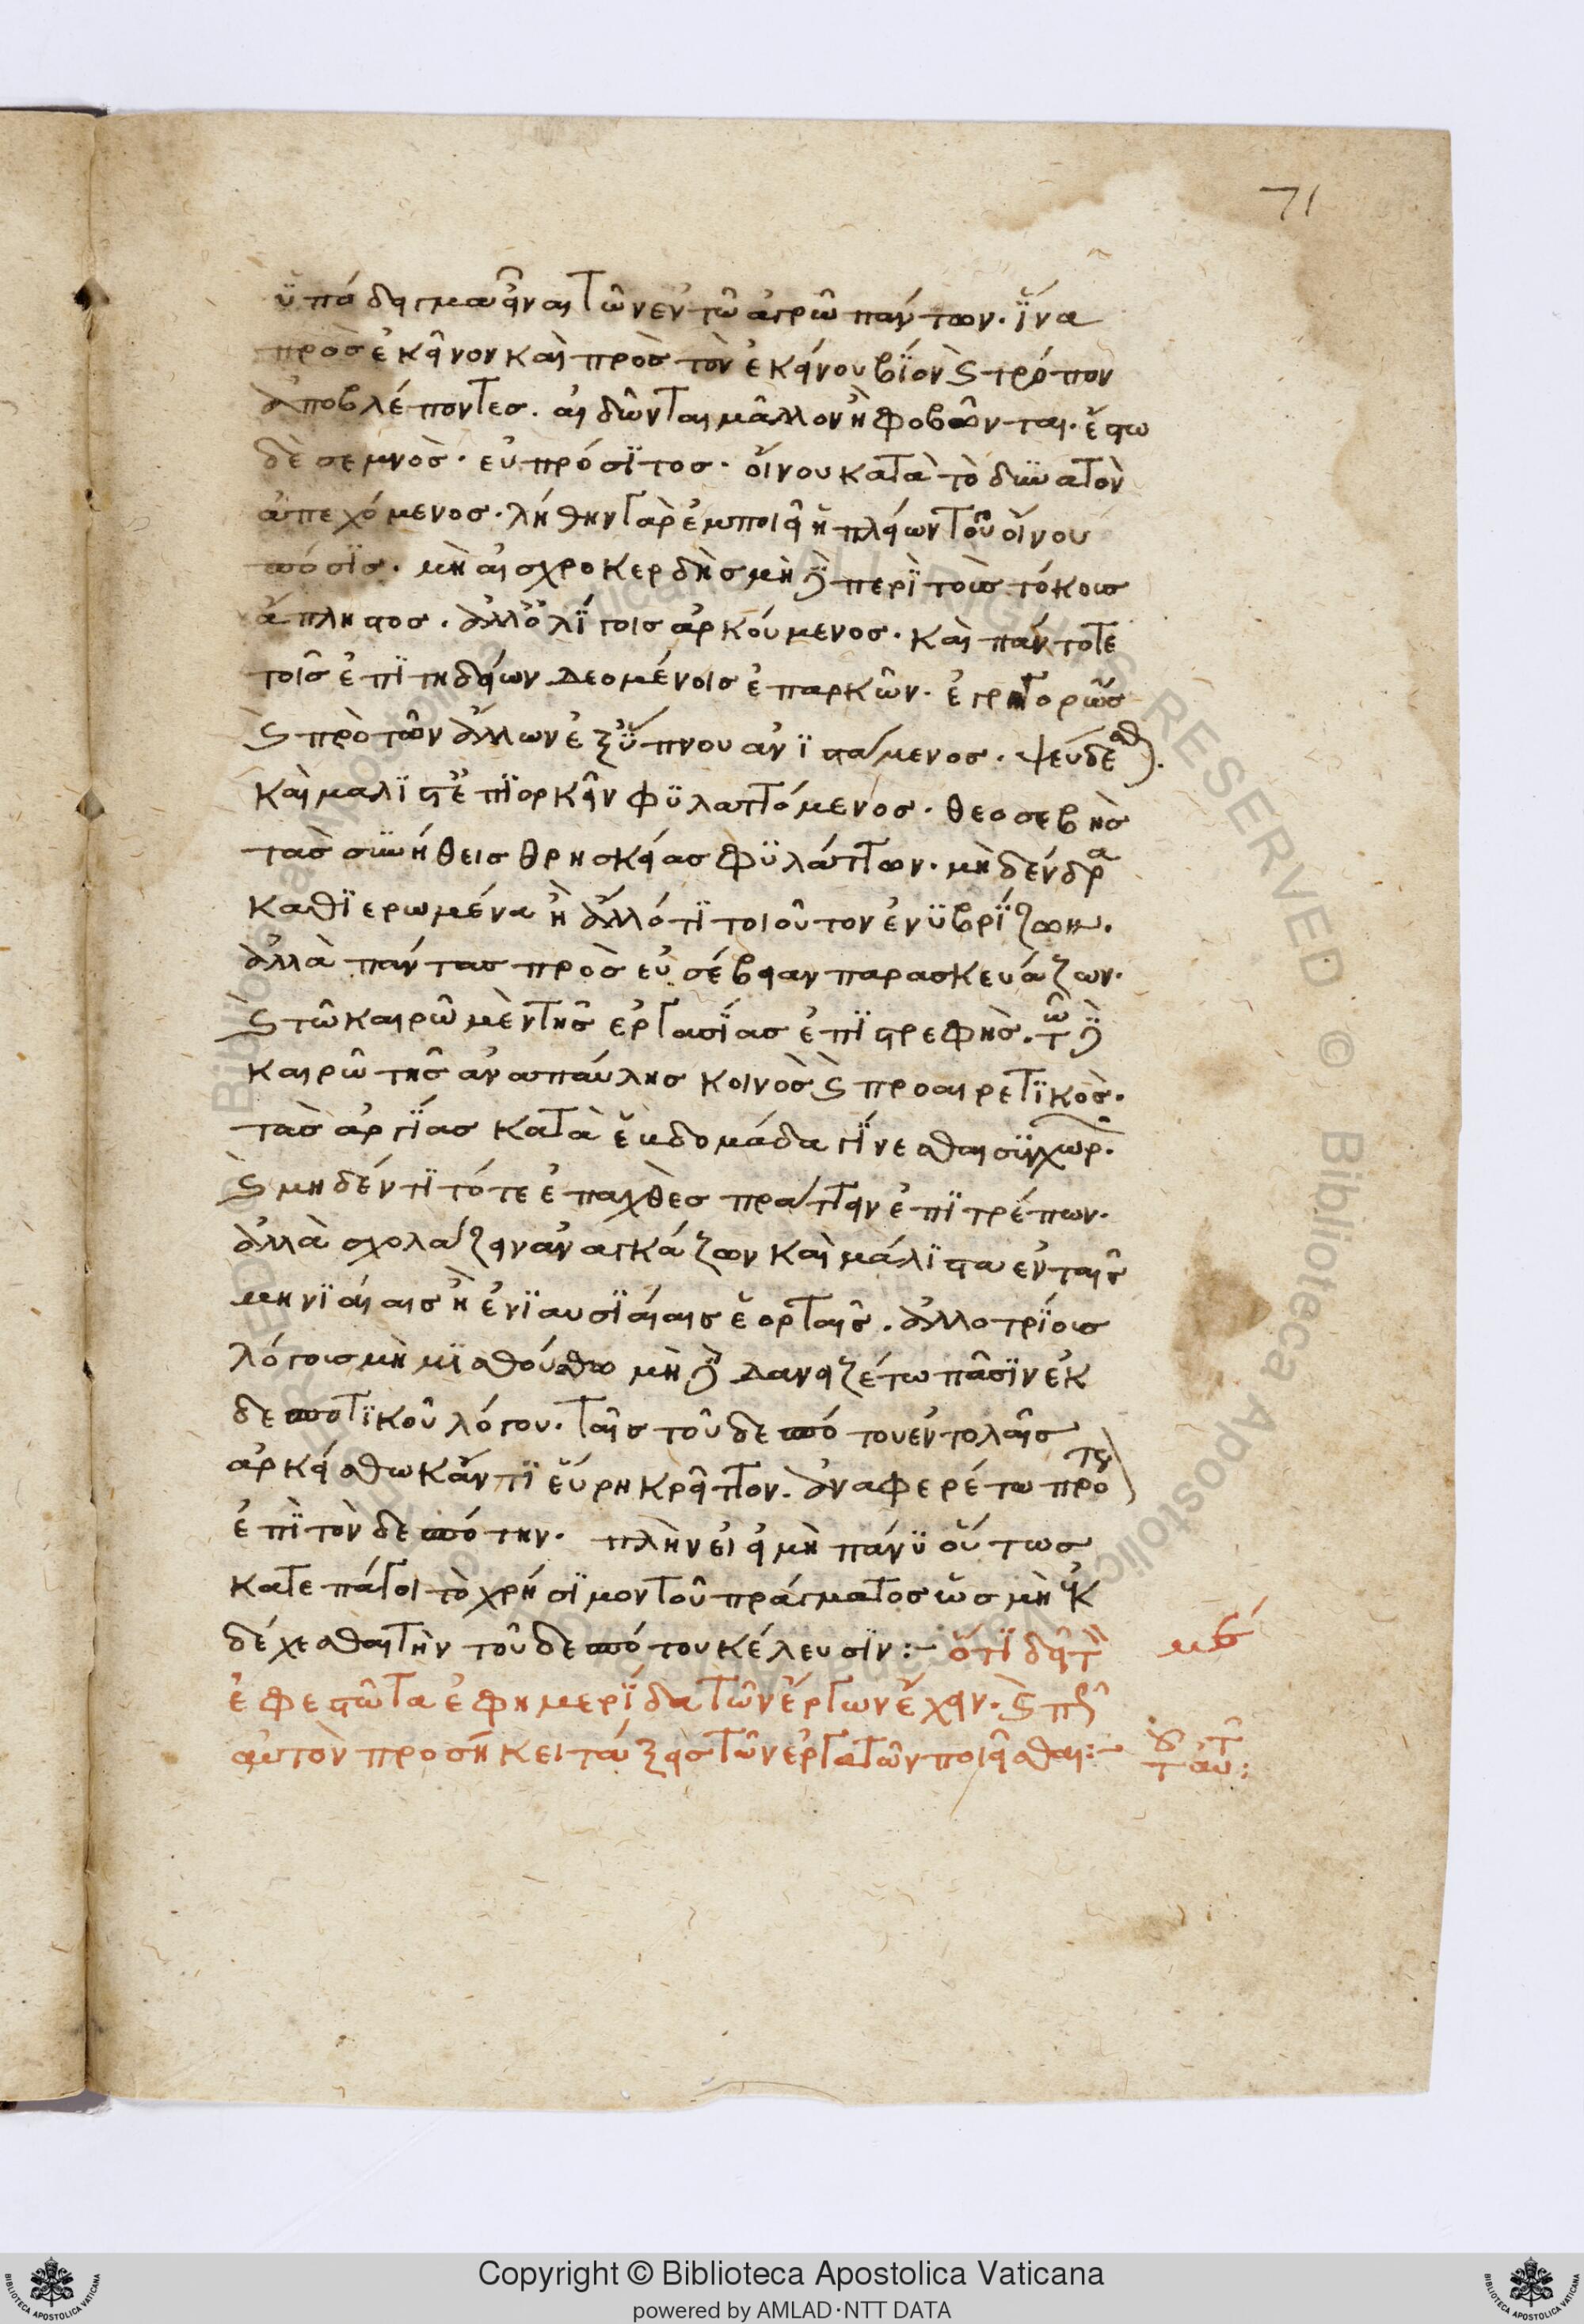 71
ὑπόδειγμα εἶναι τῶν ἐν τῶ ἀγρῶ πάντων. ἵνα
πρὸς ἐκεῖνον καὶ πρὸς τὸν ἐκείνου βίον ϗ τρόπον
ἀποβλέποντες. αἰδῶνται μᾶλλον ἢ φοβῶνται. ἔστω
δὲ σεμνὸς. εὐπρόσιτος. οἴνου κατὰ τὸ δυνατὸν
ἀπεχόμενος. λήθην γὰρ ἐμποιεῖ ἡ πλείων τοῦ οἴνου
πόσις. μὴ αἰσχροκερδὴς μὴ δὲ περὶ τοὺς τόκους
ἄπληστος. ἀλλ' ὀλίγοις ἀρκούμενος. καὶ πάντοτε
τοῖς ἐπιτηδείων δεομένοις ἐπαρκῶν. ἐγρηγορὼς
ϗ πρὸ τῶν ἄλλων ἐξ ὕπνου ἀνιστάμενος. ψεύδεσθαι
καὶ μάλιστ' ἐπιορκεῖν φυλαττόμενος. θεοσεβὴς
τὰς συνήθεις θρησκείας φυλάττων. μὴ δένδρα
καθιερωμένα ἢ ἄλλό τι τοιοῦτον ἐνυβρίζων.
ἀλλὰ πάντας πρὸς εὐσέβειαν παρασκευάζων.
ϗ τῶ καιρῶ μὲν τῆς ἐργασίας ἐπιστρεφὴς. τῶ δὲ
καιρῶ τῆς ἀναπαύλης κοινὸς ϗ προαιρετικὸς.
τὰς ἀργίας κατὰ ἑβδομάδα γίνεσθαι συγχωρ.
ϗ μηδέν τι τότε ἐπαχθὲς πράττειν ἐπιτρέπων.
ἀλλὰ σχολάζειν ἀναγκάζων καὶ μάλιστα ἐν ταῖς
μηνιαίαις ἢ ἐνιαυσιαίαις ἑορταῖς. ἀλλοτρίοις
λόγοις μὴ μισθούσθω μὴ δὲ δανειζέτω πᾶσιν ἐκ
δεσποτικοῦ λόγου. ταῖς τοῦ δεσπότου ἐντολαῖς
ἀρκείσθω κἄν τι εὕρη κρεῖττον. ἀναφερέτω πρότε
ἐπὶ τὸν δεσπότην. πλὴν εἰ μὴ πάνυ οὕτως
κατεπάγοι τὸ χρήσιμον τοῦ πράγματος ὡς μὴ ἐκ
δέχεσθαι τὴν τοῦ δεσπότου κέλευσιν:- ὅτι δεῖ τὸν
ἐφεστῶτα ἐφημερίδα τῶν ἔργων ἔχειν. ϗ περὶ
αὐτὸν προσήκει τάξεις τῶν ἐργατῶν ποιεῖσθαι:-